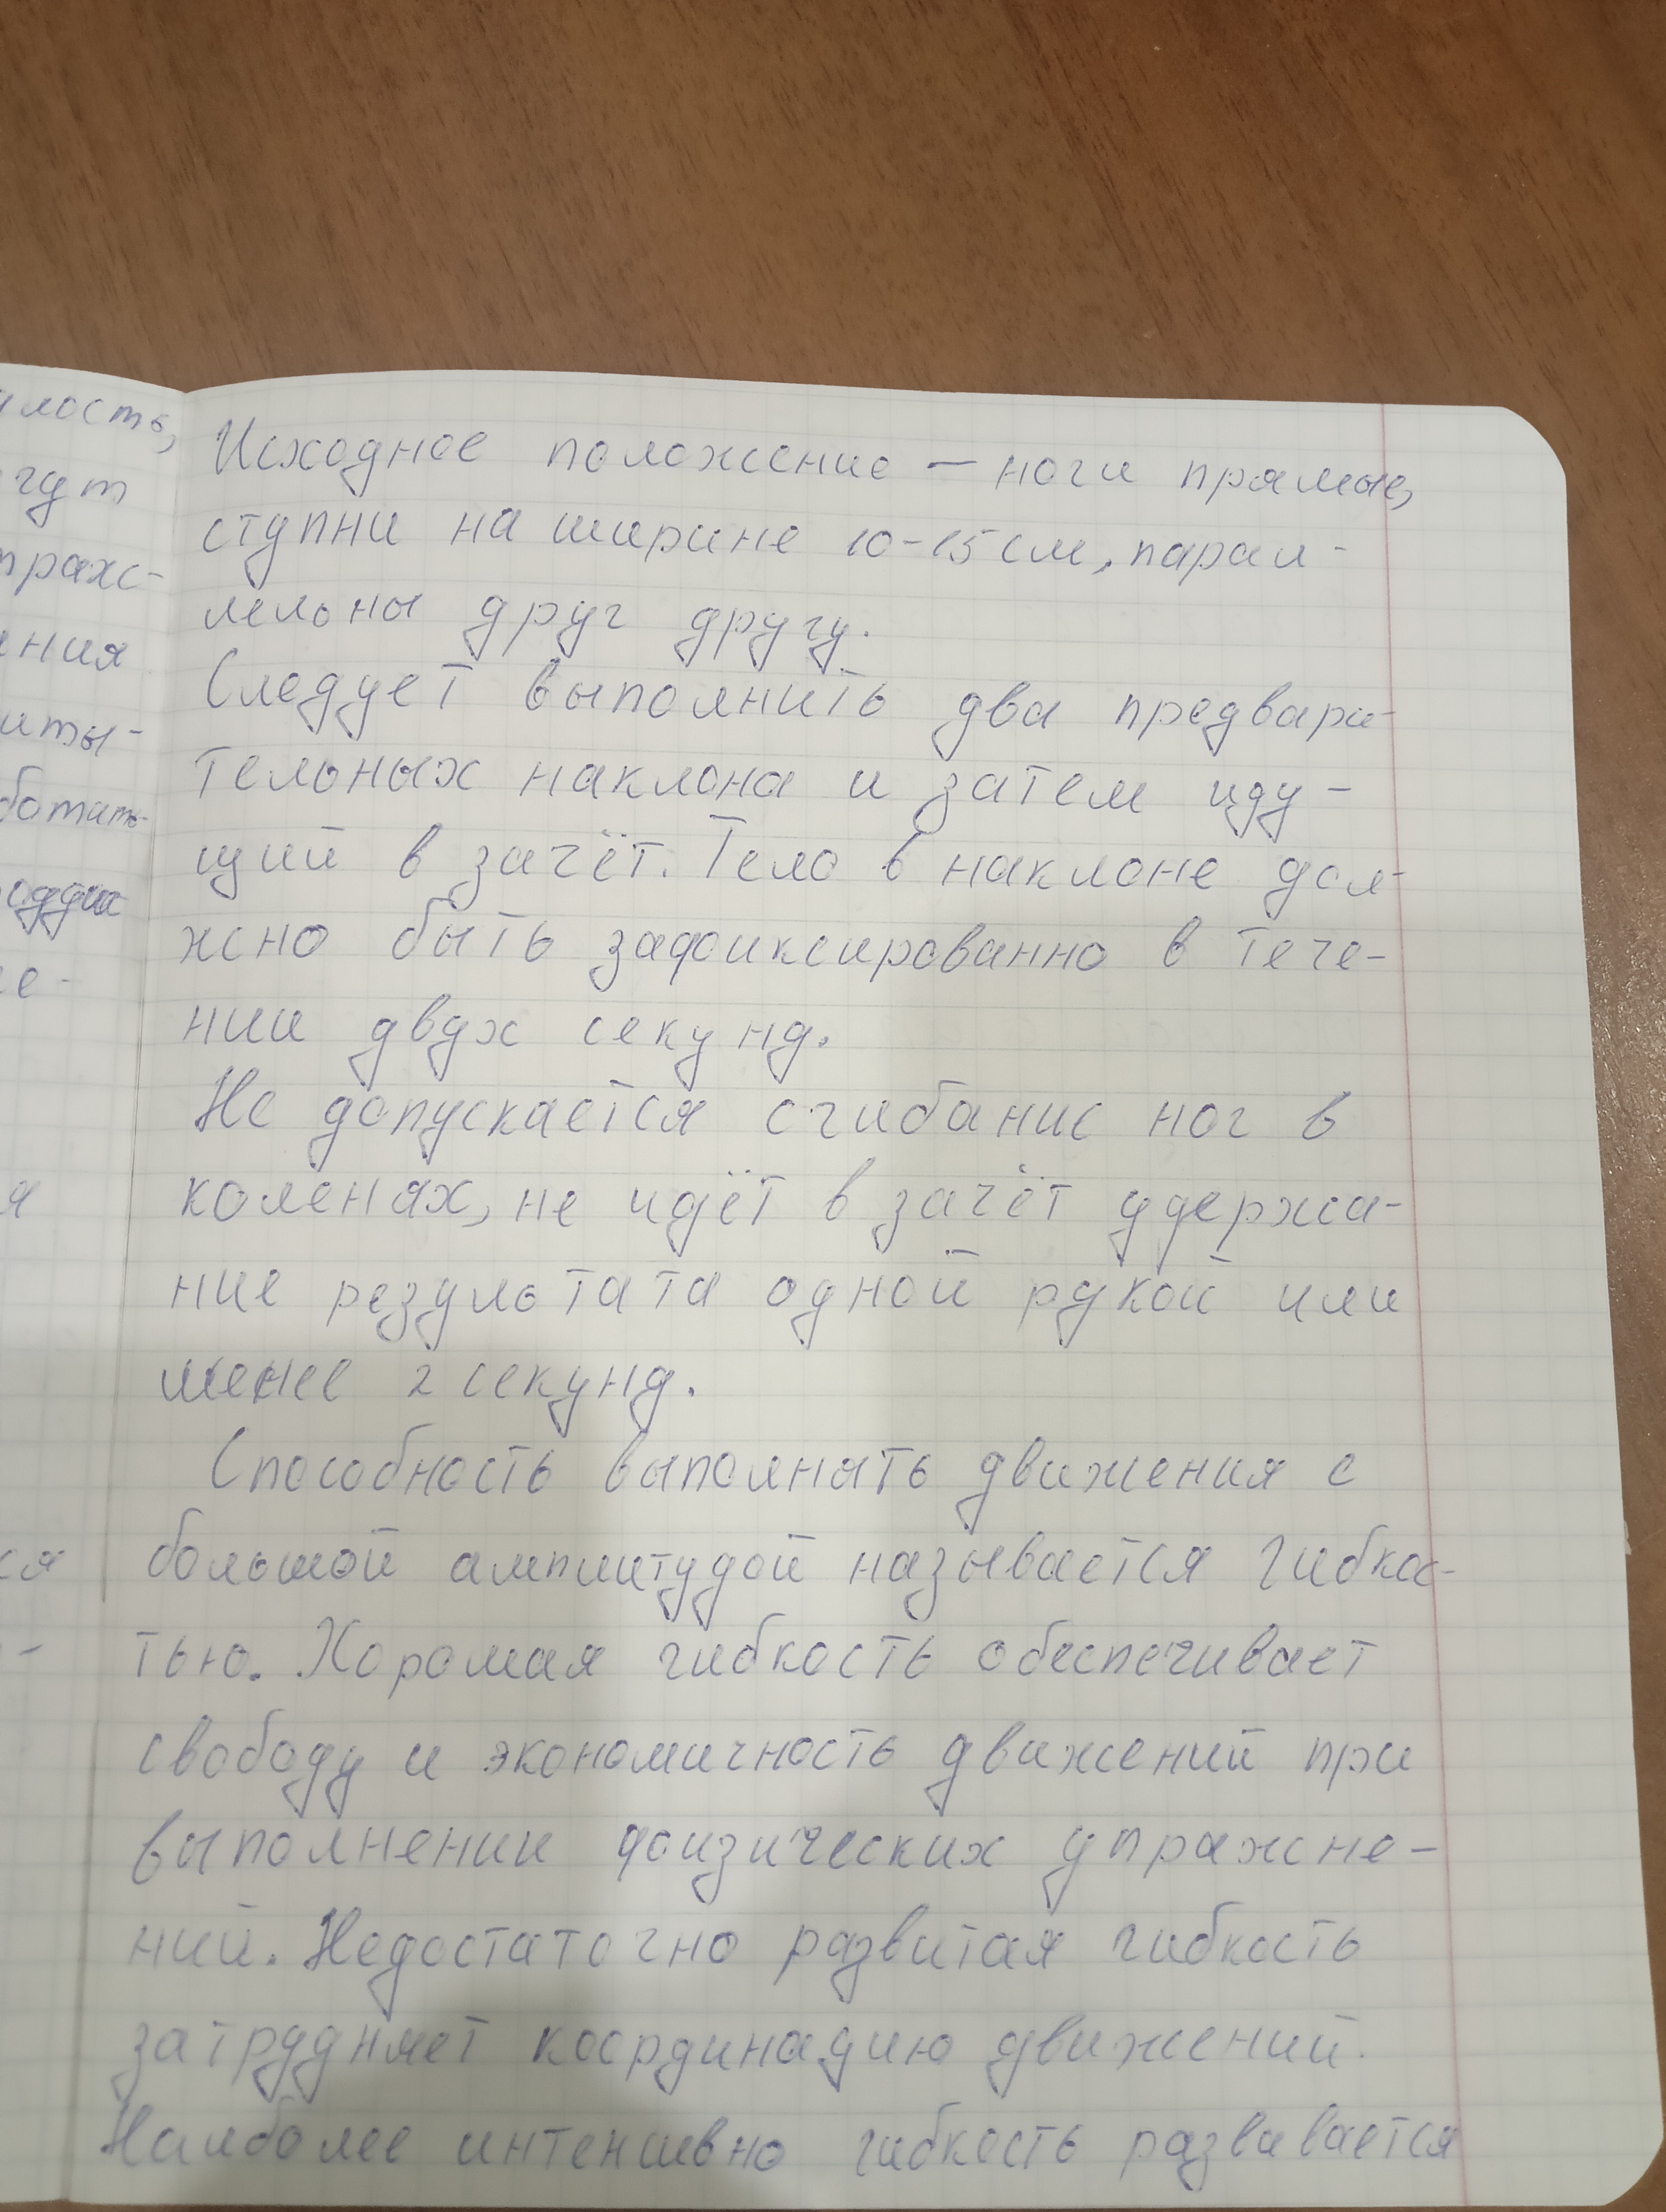 Исходное положение – ноги прямые,
ступни на ширине 10-15 см, парал-
лельны друг другу.
Следует выполнить два предвари-
тельных наклона и затем иду-
щий в зачёт. Тело в наклоне дол-
жно быть зафиксированно в тече-
нии двух секунд.
Не допускается сгибание ног в
коленях, не идёт в зачёт удержа-
ние результата одной рукой или
менее 2 секунд.
Способность выполнять движения с
большой амплитудой называется гибкос-
тью. Хорошая гибкость обеспечивает
свободу и экономичность движений при
выполнении физических упражне-
ний. Недостаточно развитая гибкость
затрудняет координацию движений.
Наиболее интенсивно гибкость развивается